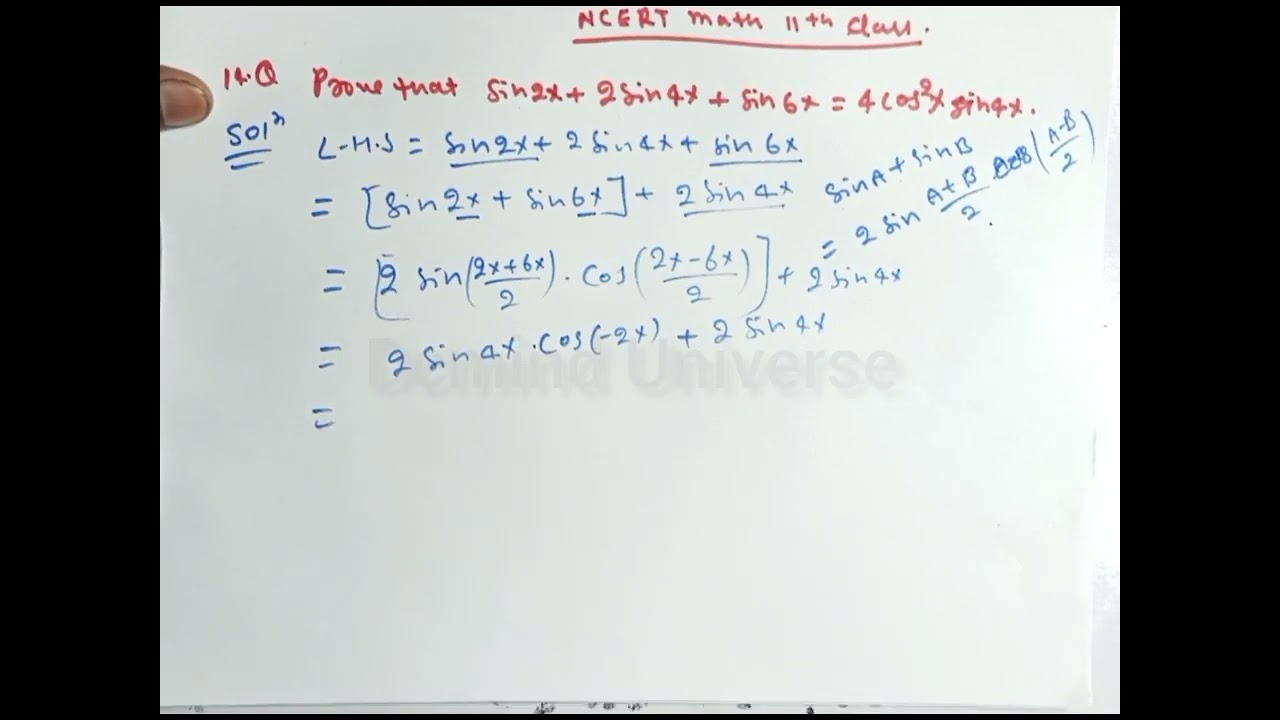 NCERT math 11th class.
14.Q Prove that sin2x + 2sin4x + sin6x = 4cos²x sin4x.
Solⁿ L.H.S = sin2x + 2sin4x + sin6x
= [sin2x + sin6x] + 2sin4x
sinA + sinB
= 2 sin A+B/2 cos(A-B/2).
= [2 sin(2x+6x/2) . cos(2x-6x/2)] + 2sin4x
= 2sin4x . cos(-2x) + 2sin4x
=
Universe